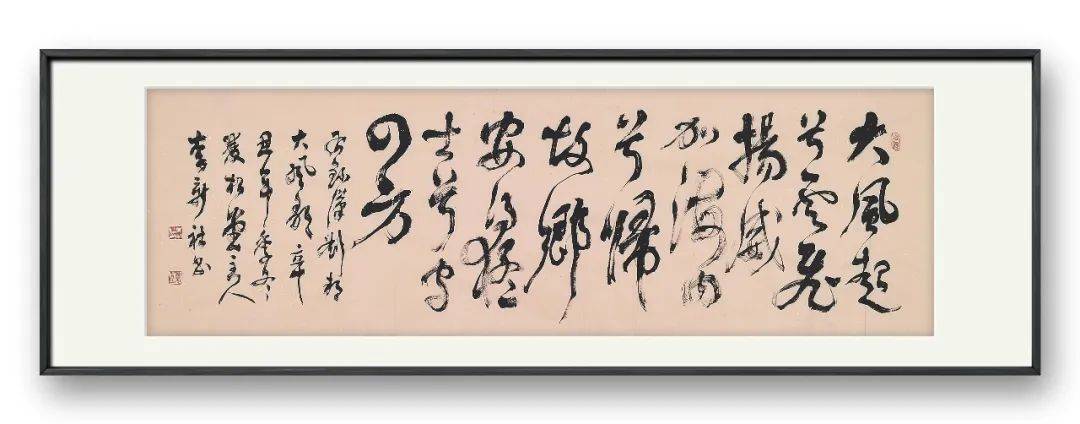 大風起
兮雲飛
揚威
加海内
兮歸
故鄉
安得猛
士兮守
四方
右錄漢劉邦
大風歌 辛
丑年季冬
松堂主人
李新社书